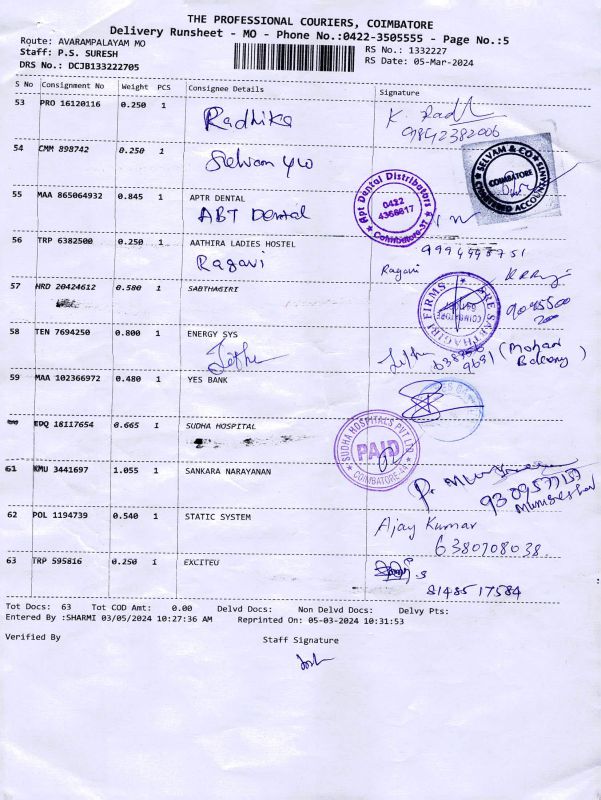 THE PROFESSIONAL COURIERS, COIMBATORE
Delivery Runsheet - MO - Phone No.:0422-3505555 - Page No.:5
Route: AVARAMPALAYAM MO
Staff: P.S. SURESH
DRS No.: DCJB133222705
RS No.: 1332227
RS Date: 05-Mar-2024
S No Consignment No Weight PCS Consignee Details Signature
53 PRO 16120116 0.250 1 Radhika K. Radh
9842382006
54 CMM 898742 0.250 1
SELVAM & CO
COIMBATORE
CHARTERED ACCOUNTANTS
55 MAA 865064932 0.845 1 APTR DENTAL
ABT Dental
Apt Dental Distributors
0422
4356617
Coimbatore-37
56 TRP 6382500 0.250 1 AATHIRA LADIES HOSTEL
Ragavi Ragavi
57 HRD 20424612 0.580 1 SABTHAGIRI
SRE SAPTHAGIRI FIRMS
COIMBATORE
58 TEN 7694250 0.800 1 ENERGY SYS
(Mohan
9691 Balcony)
59 MAA 102366972 0.480 1 YES BANK
EDQ 18117654 0.665 1 SUDHA HOSPITAL
SUDHA HOSPITALS PVT LTD
PAID
COIMBATORE
61 KMU 3441697 1.055 1 SANKARA NARAYANAN
62 POL 1194739 0.540 1 STATIC SYSTEM
Ajay Kumar
6380708038
63 TRP 595816 0.250 1 EXCITEU
8148517584
Tot Docs: 63 Tot COD Amt: 0.00 Delvd Docs: Non Delvd Docs: Delvy Pts:
Entered By :SHARMI 03/05/2024 10:27:36 AM Reprinted On: 05-03-2024 10:31:53
Verified By Staff Signature